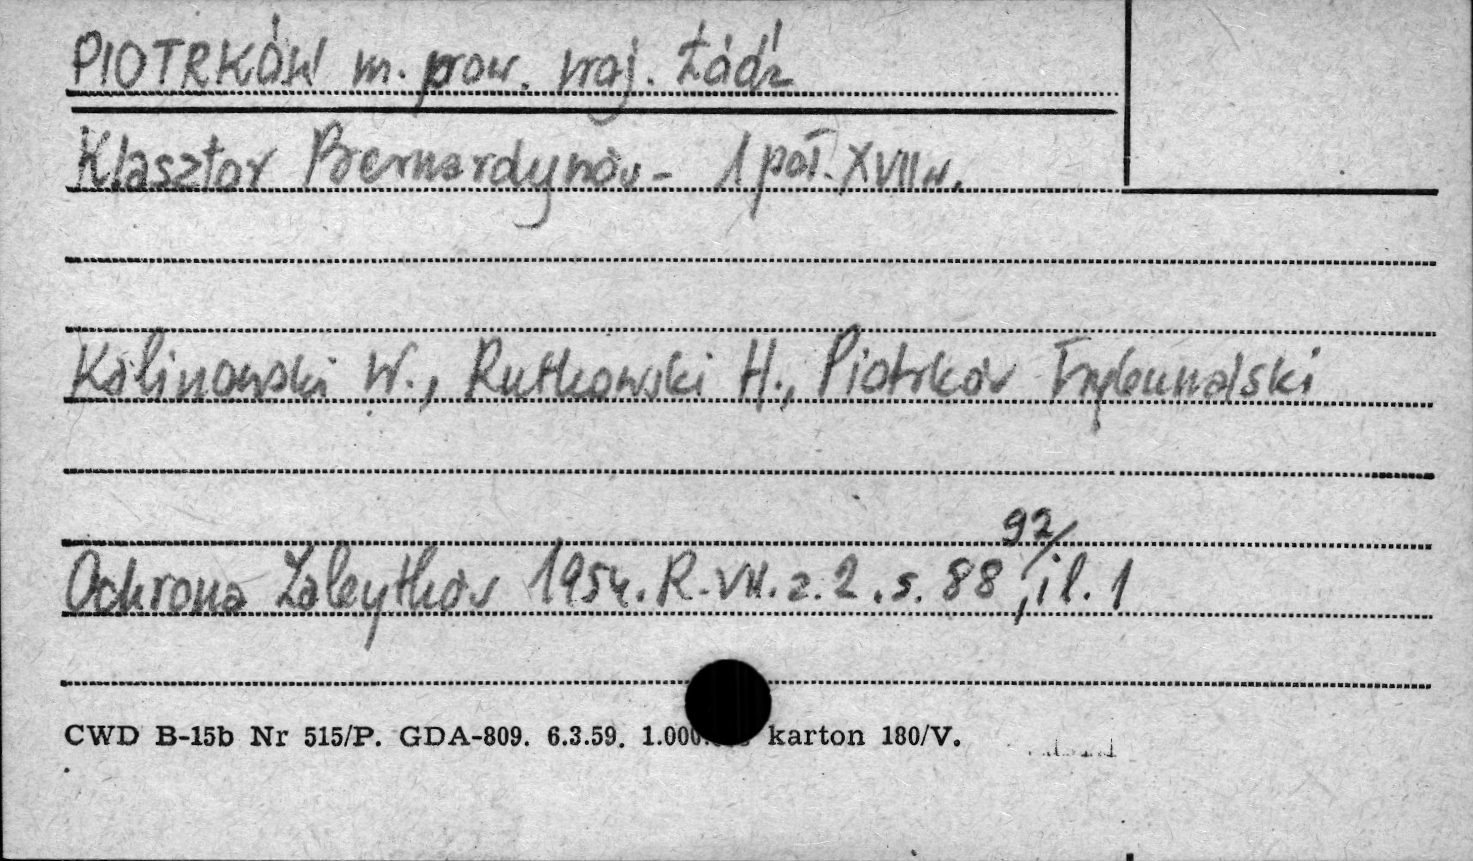 PIOTRKÓW m. pow. woj. Łódź
Klasztor Bernardynów - 1 poł. XVII w.
Kalinowski W., Rutkowski H., Piotrków Trybunalski
92/
Ochrona Zabytków 1954. R. VII. z. 2. s. 88, il. 1
CWD B-15b Nr 515/P. GDA-809. 6.3.59. karton 180/V.